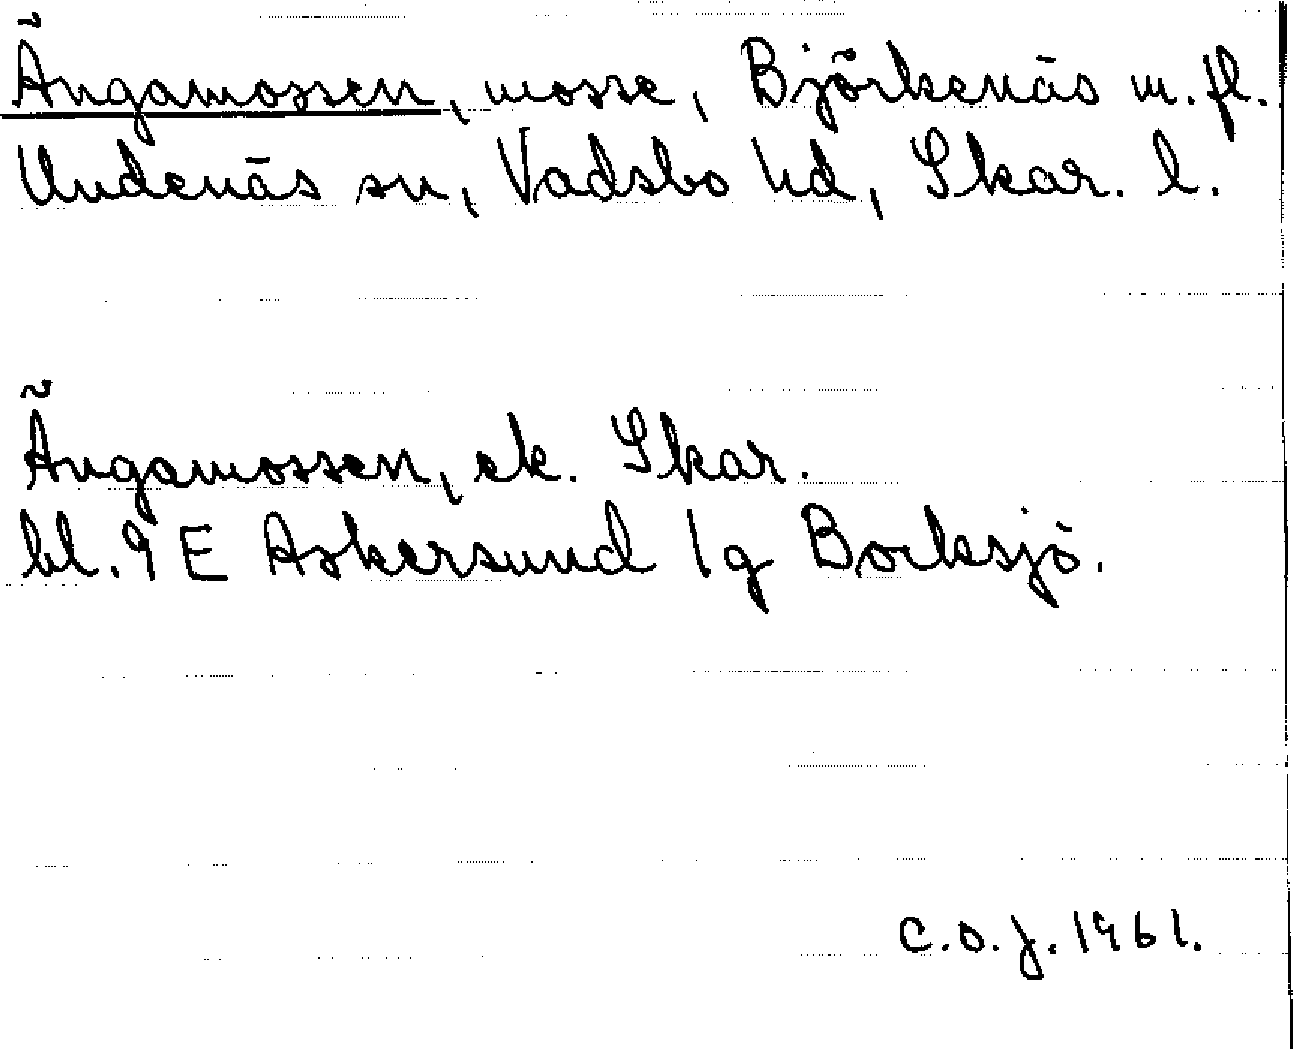 Ängamossen, mosse, Björkenäs m. fl.
Undenäs sn, Vadsbo hd, Skar. l.
Ängamossen, ek. Skar.
bl. 9 E Askersund 1g Borksjö.
C.O.J. 1961.